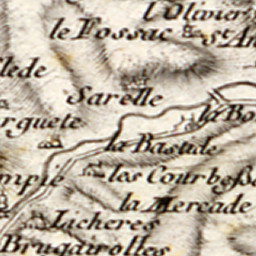 l'Olivier
le Fossac
St An
lede
Sarelle
la Bo
rguete
la Bastide
mpie
les Courbeße
la Mercade
Licheres
Brugairolles